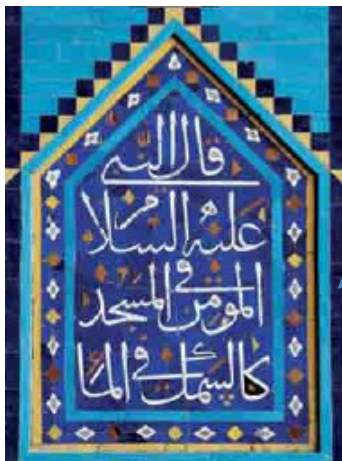 قال النبی
علیه السلام
المؤمن فی المسجد
کالسمک فی الماء